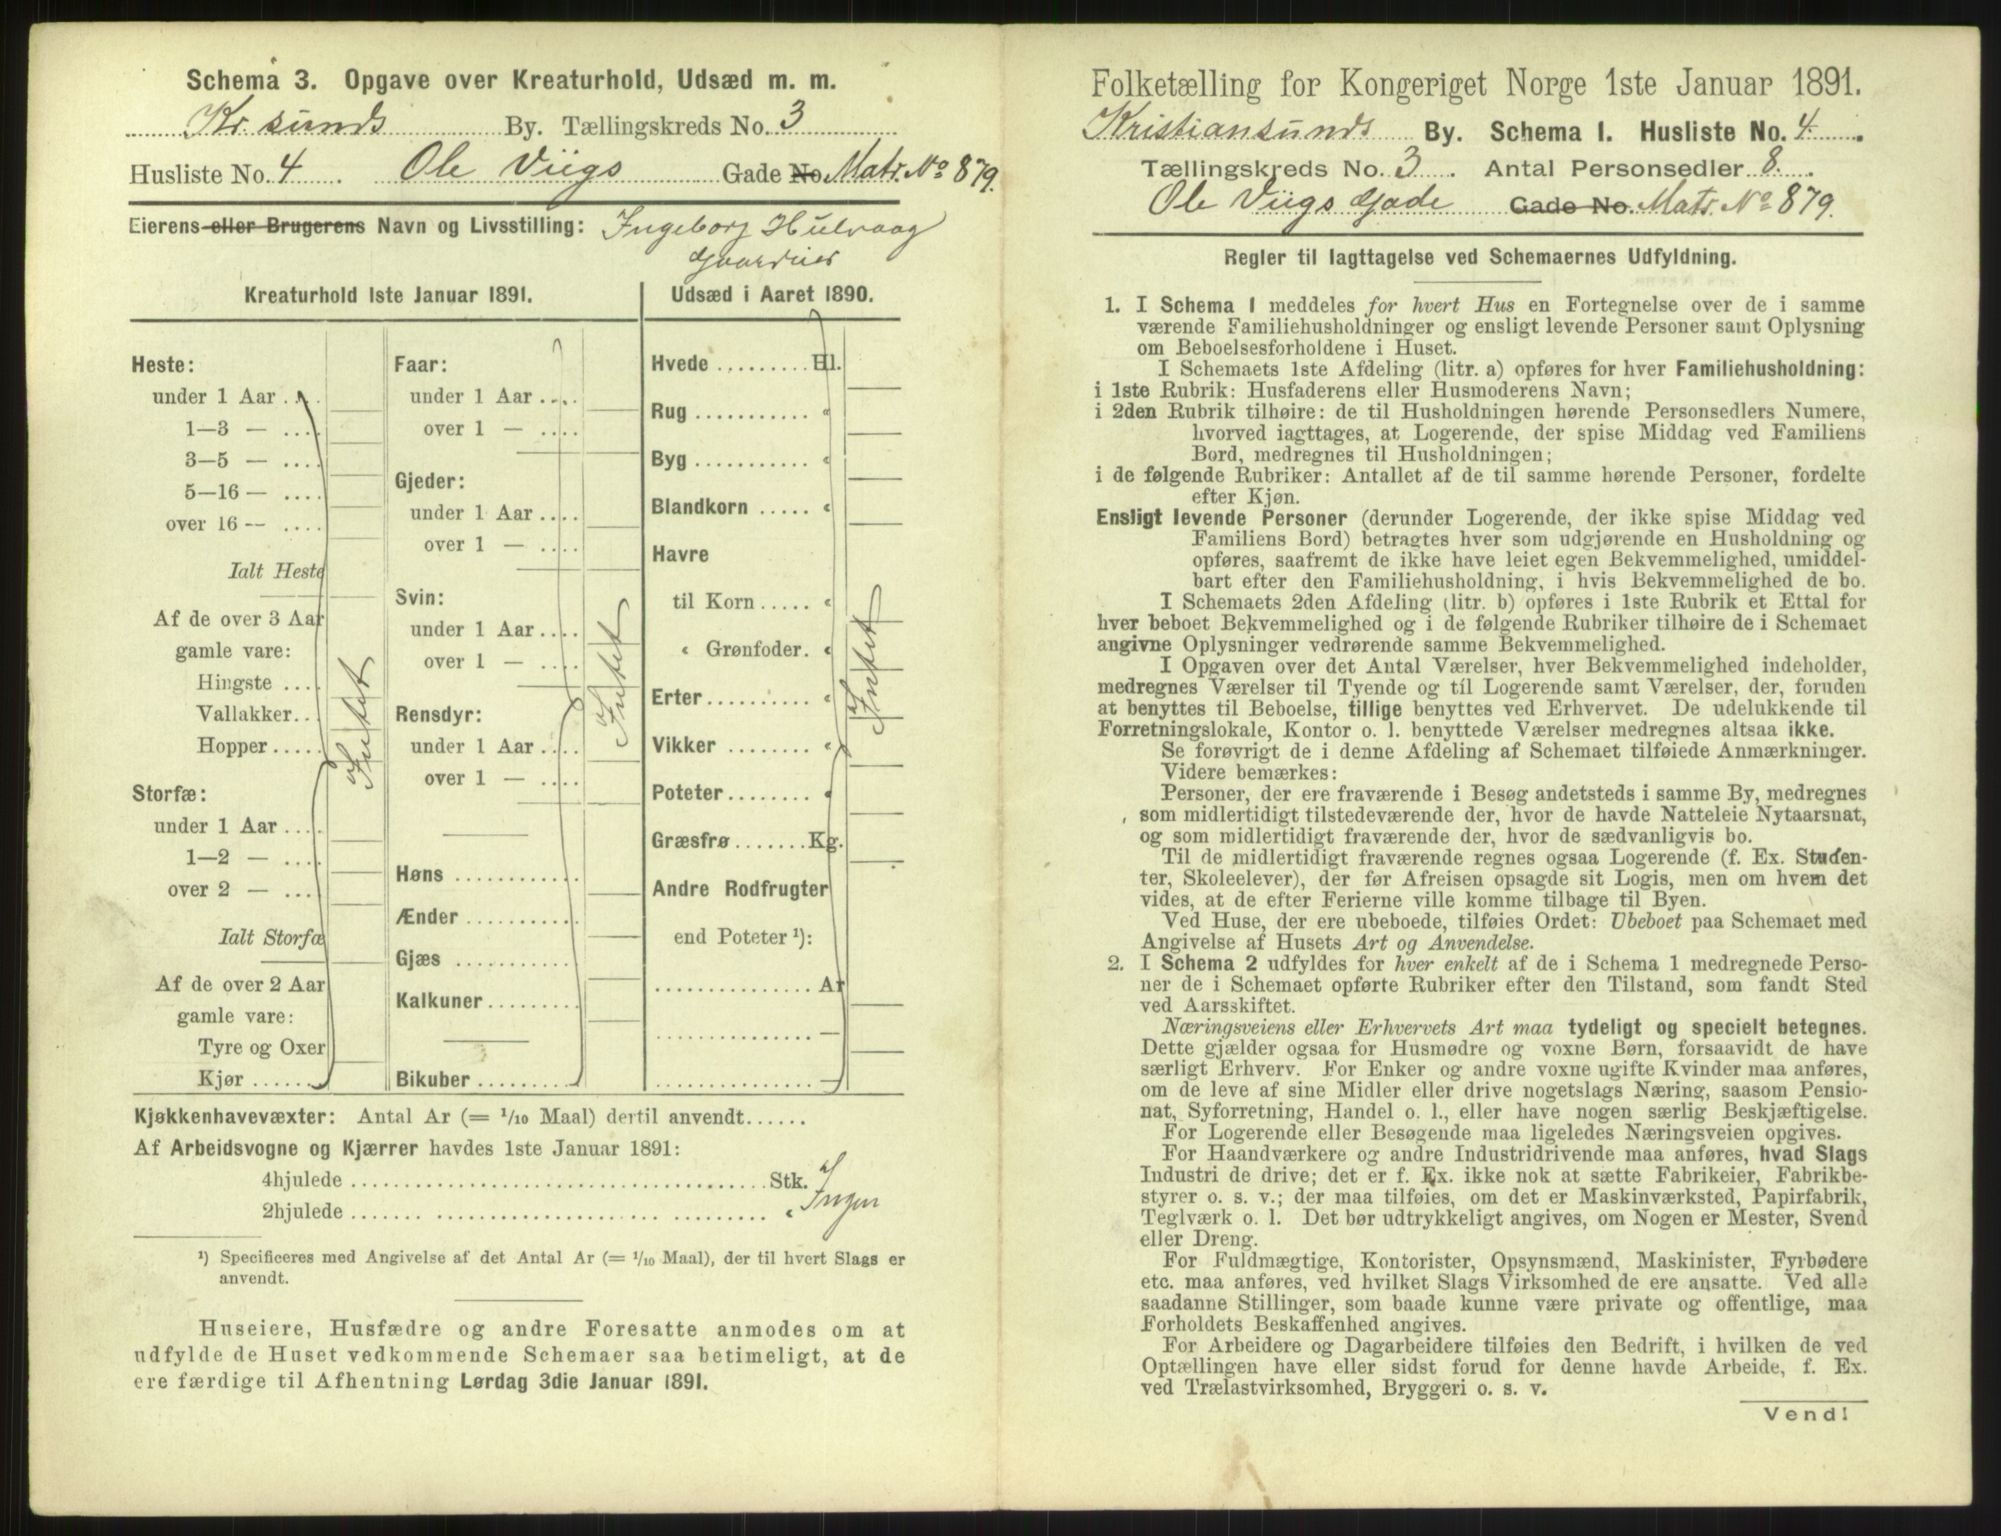 Schema 3. Opgave over Kreaturhold, Udsæd m. m.
Kr. sunds By. Tællingskreds No. 3
Husliste No. 4 Ole Viigs Gade No. Matr. No 879.
Eierens eller Brugerens Navn og Livsstilling: Ingeborg Hulvaag
Kreaturhold 1ste Januar 1891.
Heste:
under 1 Aar ....
1—3 — ....
3—5 — ....
5—16 — ....
over 16 — ....
Ialt Heste
Af de over 3 Aar
gamle vare:
Hingste ....
Vallakker...
Hopper.....
Intet
Storfæ:
under 1 Aar ....
1—2 — ....
over 2 — ....
Ialt Storfæ
Af de over 2 Aar
gamle vare:
Tyre og Oxer
Kjør .......
Faar:
under 1 Aar ....
over 1 — ....
Gjeder:
under 1 Aar ....
over 1 — ....
Svin:
under 1 Aar ....
over 1 — ....
Intet
Rensdyr:
under 1 Aar ....
over 1 — ....
Høns ..........
Ænder .........
Gjæs ..........
Kalkuner.......
Bikuber ........
Udsæd i Aaret 1890.
Hvede ......... Hl.
Rug ........... "
Byg ........... "
Blandkorn ..... "
Havre
til Korn..... "
" Grønfoder. "
Intet
Erter.......... "
Vikker ........ "
Poteter........ "
Græsfrø.......Kg.
Andre Rodfrugter
end Poteter ¹):
............... Ar
............... —
............... —
Kjøkkenhavevæxter: Antal Ar (= 1/10 Maal) dertil anvendt......
Af Arbeidsvogne og Kjærrer havdes 1ste Januar 1891:
4hjulede ..................................... Stk.
2hjulede ..................................... "
Ingen
¹) Specificeres med Angivelse af det Antal Ar (= 1/10 Maal), der til hvert Slags er
anvendt.
Huseiere, Husfædre og andre Foresatte anmodes om at
udfylde de Huset vedkommende Schemaer saa betimeligt, at de
ere færdige til Afhentning Lørdag 3die Januar 1891.
Folketælling for Kongeriget Norge 1ste Januar 1891.
Kristiansunds By. Schema 1. Husliste No. 4.
Tællingskreds No. 3. Antal Personsedler 8.
Ole Viigs Gade Gade No. Matr. No 879.
Regler til Iagttagelse ved Schemaernes Udfyldning.
1. I Schema 1 meddeles for hvert Hus en Fortegnelse over de i samme
værende Familiehusholdninger og ensligt levende Personer samt Oplysning
om Beboelsesforholdene i Huset.
I Schemaets 1ste Afdeling (litr. a) opføres for hver Familiehusholding:
i 1ste Rubrik: Husfaderens eller Husmoderens Navn;
i 2den Rubrik tilhøire: de til Husholdningen hørende Personsedlers Numere,
hvorved iagttages, at Logerende, der spise Middag ved Familiens
Bord, medregnes til Husholdningen;
i de følgende Rubriker: Antallet af de til samme hørende Personer, fordelte
efter Kjøn.
Ensligt levende Personer (derunder Logerende, der ikke spise Middag ved
Familiens Bord) betragtes hver som udgjørende en Husholdning og
opføres, saafremt de ikke have leiet egen Bekvemmelighed, umiddel-
bart efter den Familiehusholdning, i hvis Bekvemmelighed de bo.
I Schemaets 2den Afdeling (litr. b) opføres i 1ste Rubrik et Ettal for
hver beboet Bekvemmelighed og i de følgende Rubriker tilhøire de i Schemaet
angivne Oplysninger vedrørende samme Bekvemmelighed.
I Opgaven over det Antal Værelser, hver Bekvemmelighed indeholder,
medregnes Værelser til Tyende og til Logerende samt Værelser, der, foruden
at benyttes til Beboelse, tillige benyttes ved Erhvervet. De udelukkende til
Forretningslokale, Kontor o. l. benyttede Værelser medregnes altsaa ikke.
Se forøvrigt de i denne Afdeling af Schemaet tilføiede Anmærkninger.
Videre bemærkes:
Personer, der ere fraværende i Besøg andetsteds i samme By, medregnes
som midlertidigt tilstedeværende der, hvor de havde Natteleie Nytaarsnat,
og som midlertidigt fraværende der, hvor de sædvanligvis bo.
Til de midlertidigt fraværende regnes ogsaa Logerende (f. Ex. Studen-
ter, Skoleelever), der før Afreisen opsagde sit Logis, men om hvem det
vides, at de efter Ferierne ville komme tilbage til Byen.
Ved Huse, der ere ubeboede, tilføies Ordet: Ubeboet paa Schemaet med
Angivelse af Husets Art og Anvendelse.
2. I Schema 2 udfyldes for hver enkelt af de i Schema 1 medregnede Perso-
ner de i Schemaet opførte Rubriker efter den Tilstand, som fandt Sted
ved Aarsskiftet.
Næringsveiens eller Erhvervets Art maa tydeligt og specielt betegnes.
Dette gjælder ogsaa for Husmødre og voxne Børn, forsaavidt de have
særligt Erhverv. For Enker og andre voxne ugifte Kvinder maa anføres,
om de leve af sine Midler eller drive nogetslags Næring, saasom Pensio-
nat, Syforretning, Handel o. l., eller have nogen særlig Beskjæftigelse.
For Logerende eller Besøgende maa ligeledes Næringsveien opgives.
For Haandværkere og andre Industridrivende maa anføres, hvad Slags
Industri de drive; det er f. Ex. ikke nok at sætte Fabrikeier, Fabrikbe-
styrer o. s. v.; der maa tilføies, om det er Maskinværksted, Papirfabrik,
Teglværk o. l. Det bør udtrykkeligt angives, om Nogen er Mester, Svend
eller Dreng.
For Fuldmægtige, Kontorister, Opsynsmænd, Maskinister, Fyrbødere
etc. maa anføres, ved hvilket Slags Virksomhed de ere ansatte. Ved alle
saadanne Stillinger, som baade kunne være private og offentlige, maa
Forholdets Beskaffenhed angives.
For Arbeidere og Dagarbeidere tilføies den Bedrift, i hvilken de ved
Optællingen have eller sidst forud for denne havde Arbeide, f. Ex.
ved Trælastvirksomhed, Bryggeri o. s. v.
Vend!